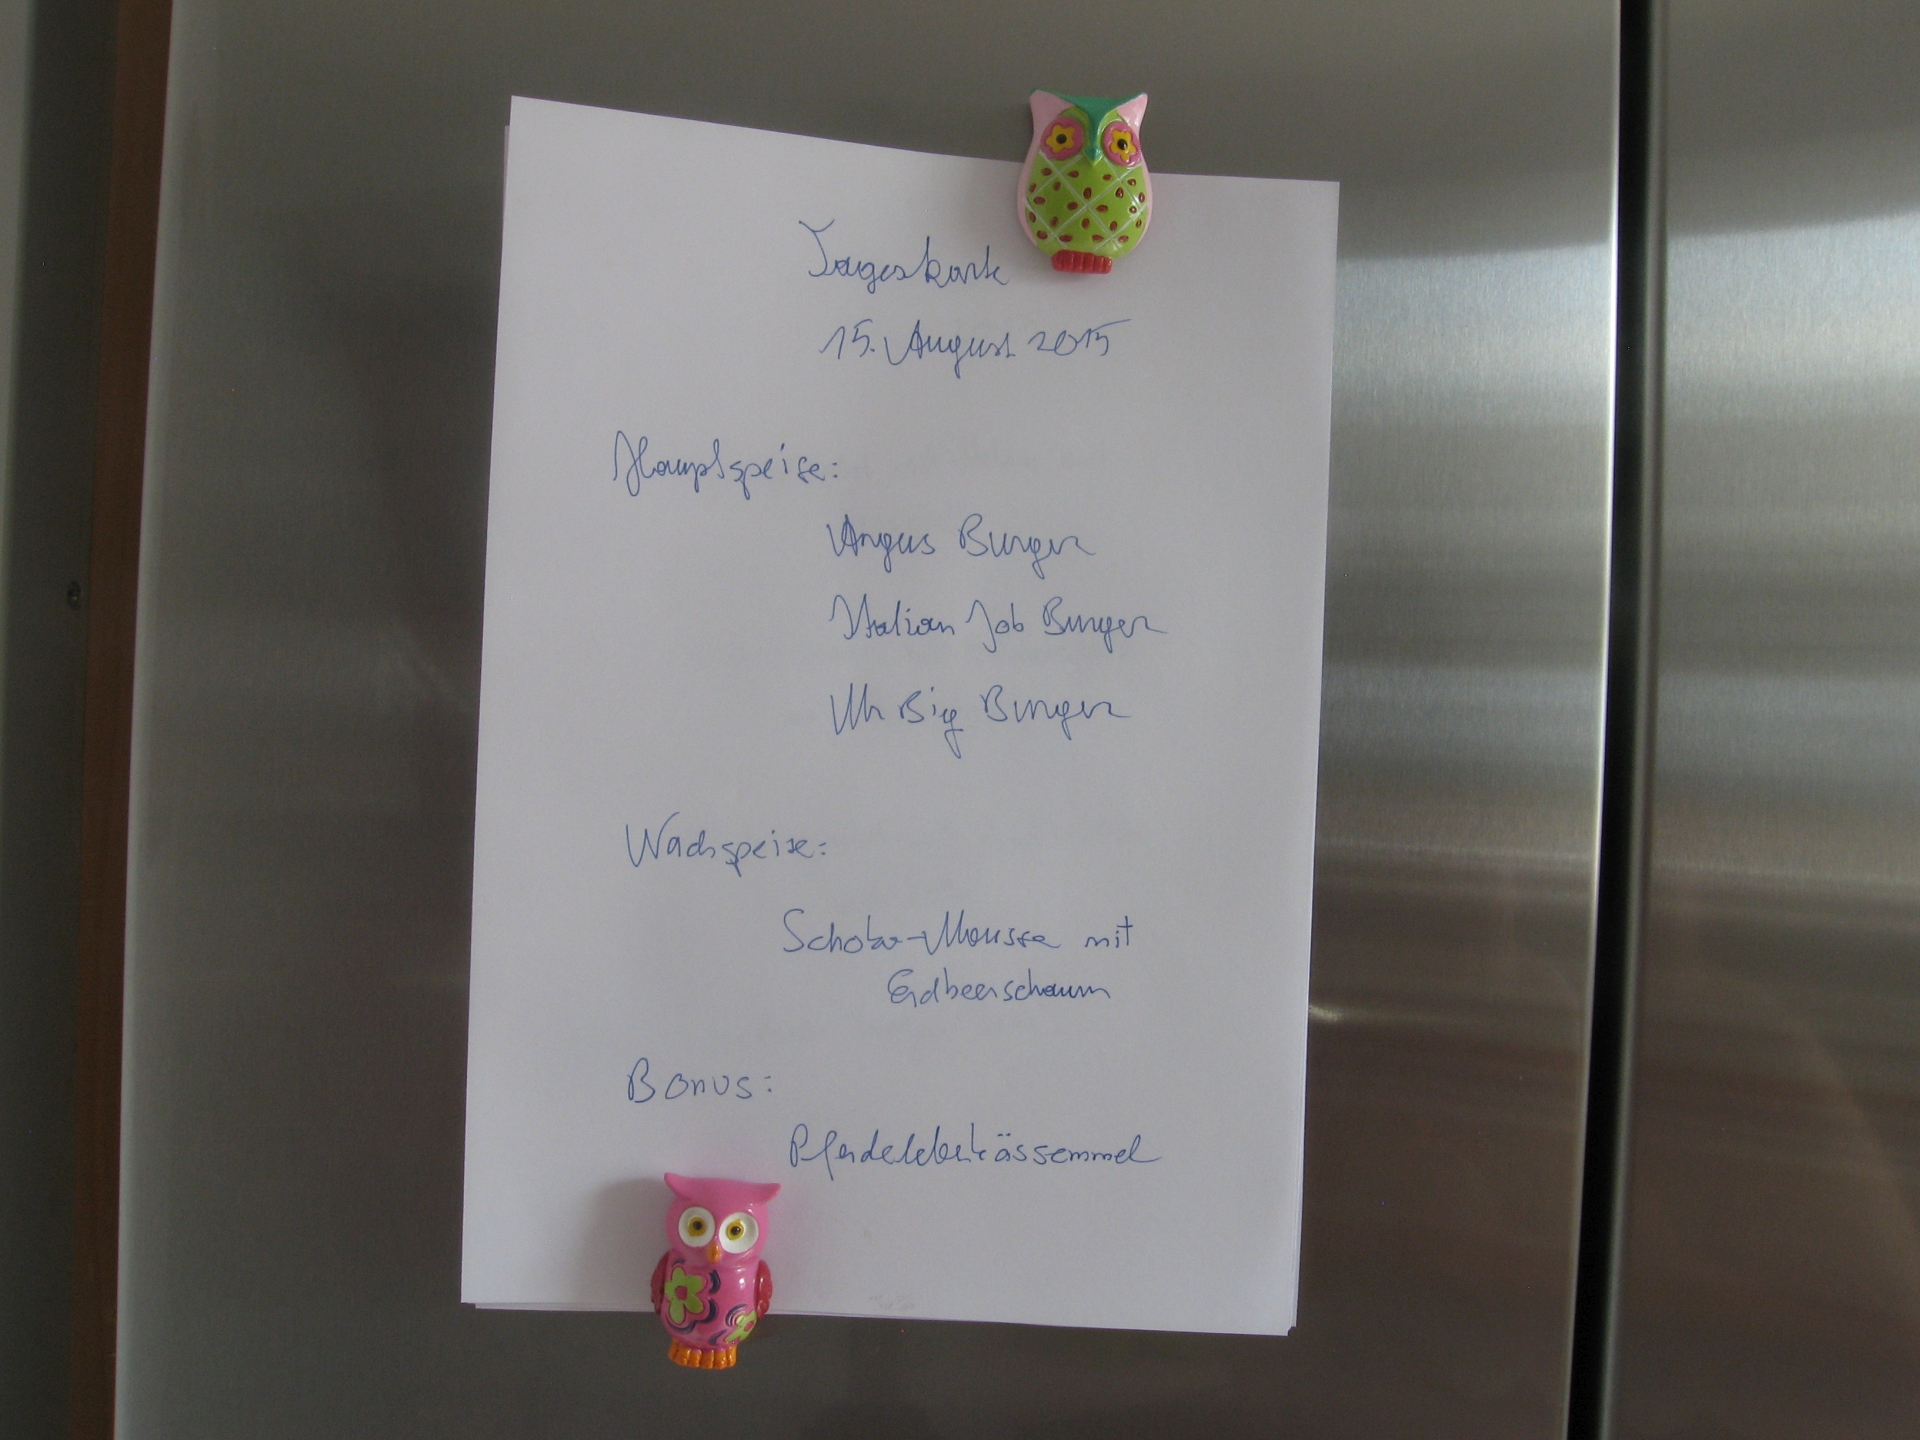 Tageskarte
15. August 2015
Hauptspeise:
Angus Burger
Italian Job Burger
Mr Big Burger
Nachspeise:
Schoko-Mousse mit
Erdbeerschaum
Bonus:
Pferdeleberkässemmel